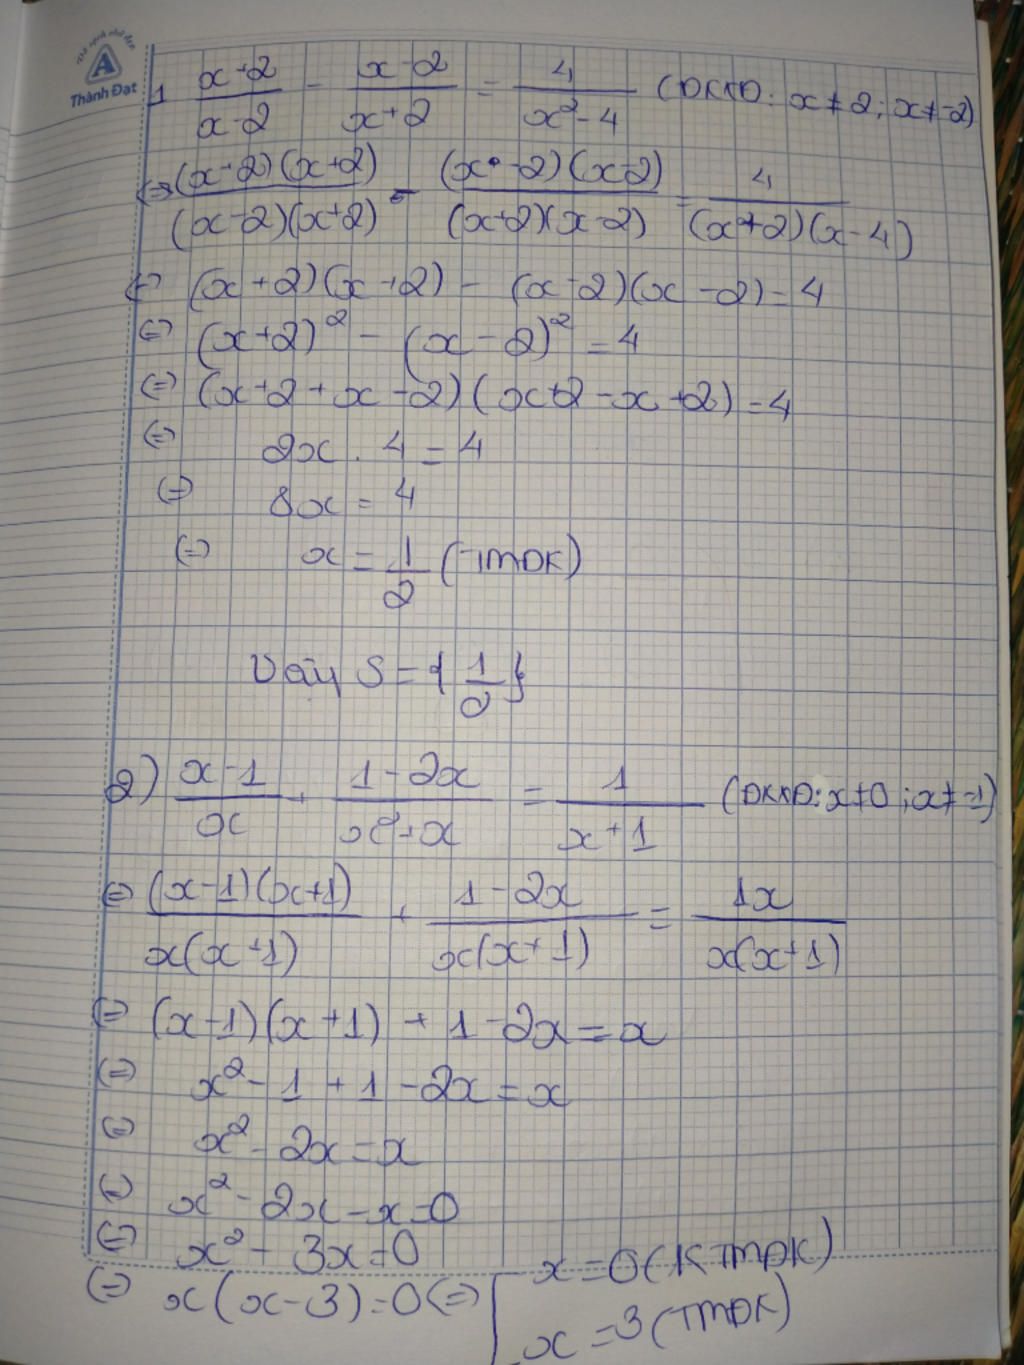 Vở sạch chữ đẹp
A
Thành Đạt
1 (x+2)/(x-2) - (x-2)/(x+2) = 4/(x²-4) (ĐKXĐ: x≠2; x≠-2)
<=> (x+2)(x+2)/(x-2)(x+2) - (x-2)(x-2)/(x+2)(x-2) = 4/(x+2)(x-4)
<=> (x+2)(x+2) - (x-2)(x-2) = 4
<=> (x+2)² - (x-2)² = 4
<=> (x+2+x-2)(x+2-x+2) = 4
<=> 2x . 4 = 4
<=> 8x = 4
<=> x = 1/2 (TMĐK)
Vậy S = {1/2}
2) (x-1)/x + (1-2x)/(x²+x) = 1/(x+1) (ĐKXĐ: x≠0; x≠-1)
<=> (x-1)(x+1)/x(x+1) + (1-2x)/x(x+1) = 1x/x(x+1)
<=> (x-1)(x+1) + 1-2x = x
<=> x² - 1 + 1 - 2x = x
<=> x² - 2x = x
<=> x² - 2x - x = 0
<=> x² - 3x = 0
<=> x(x-3) = 0 <=> [ x = 0 (KTMĐK)
x = 3 (TMĐK)